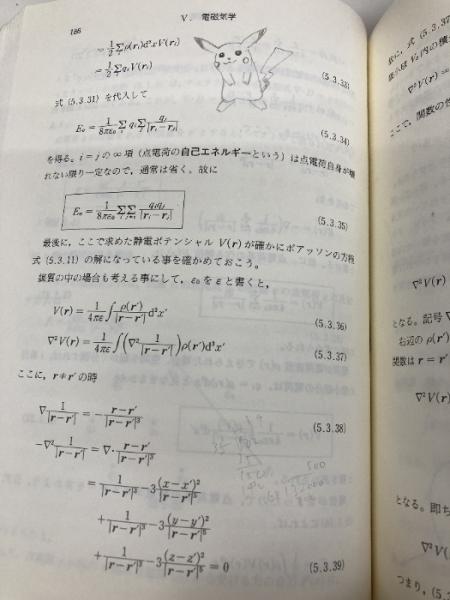 186
V. 電磁気学
= 1/2 Σ ρ(rᵢ)d³xV(rᵢ)
= 1/2 Σ qᵢV(rᵢ) (5.3.33)
式 (5.3.31) を代入して
E₀ = 1/8πε₀ Σ qᵢ Σ qⱼ/|rᵢ−rⱼ| (5.3.34)
を得る。i=jの∞項 (点電荷の自己エネルギーという) は点電荷自身が壊
れない限り一定なので,通常は省く。故に
1/8πε₀ Σ Σ qᵢqⱼ/|rᵢ−rⱼ| (5.3.35)
最後に,ここで求めた静電ポテンシャル V(r) が確かにポアッソンの方程
式 (5.3.11) の解になっている事を確かめておこう。
媒質の中の場合も考える事にして,ε₀を ε と書くと,
V(r) = 1/4πε ∫ ρ(r′)/|r−r′| d³x′ (5.3.36)
∇²V(r) = 1/4πε ∫(∇² 1/|r−r′|)ρ(r′)d³x′ (5.3.37)
ここに,r≠r′の時
∇ 1/|r−r′| = − r−r′/|r−r′|³ (5.3.38)
−∇² 1/|r−r′| = ∇· r−r′/|r−r′|³
= 1/|r−r′|³ −3 (x−x′)²/|r−r′|⁵
+ 1/|r−r′|³ −3 (y−y′)²/|r−r′|⁵
+ 1/|r−r′|³ −3 (z−z′)²/|r−r′|⁵ = 0 (5.3.39)
500
故に,式 (5.3.37
∇²V(r) =
ここで,関数の性
∇²V(r)
となる。記号
右辺の ρ(r′)
関数は r = r′
∇²V(r)
となる。即ち
∇²V(
つまり,(5.